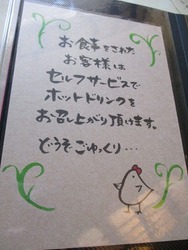 お食事をされた
お客様は
セルフサービスで
ホットドリンクを
お召し上がり頂けます。
どうぞごゆっくり…